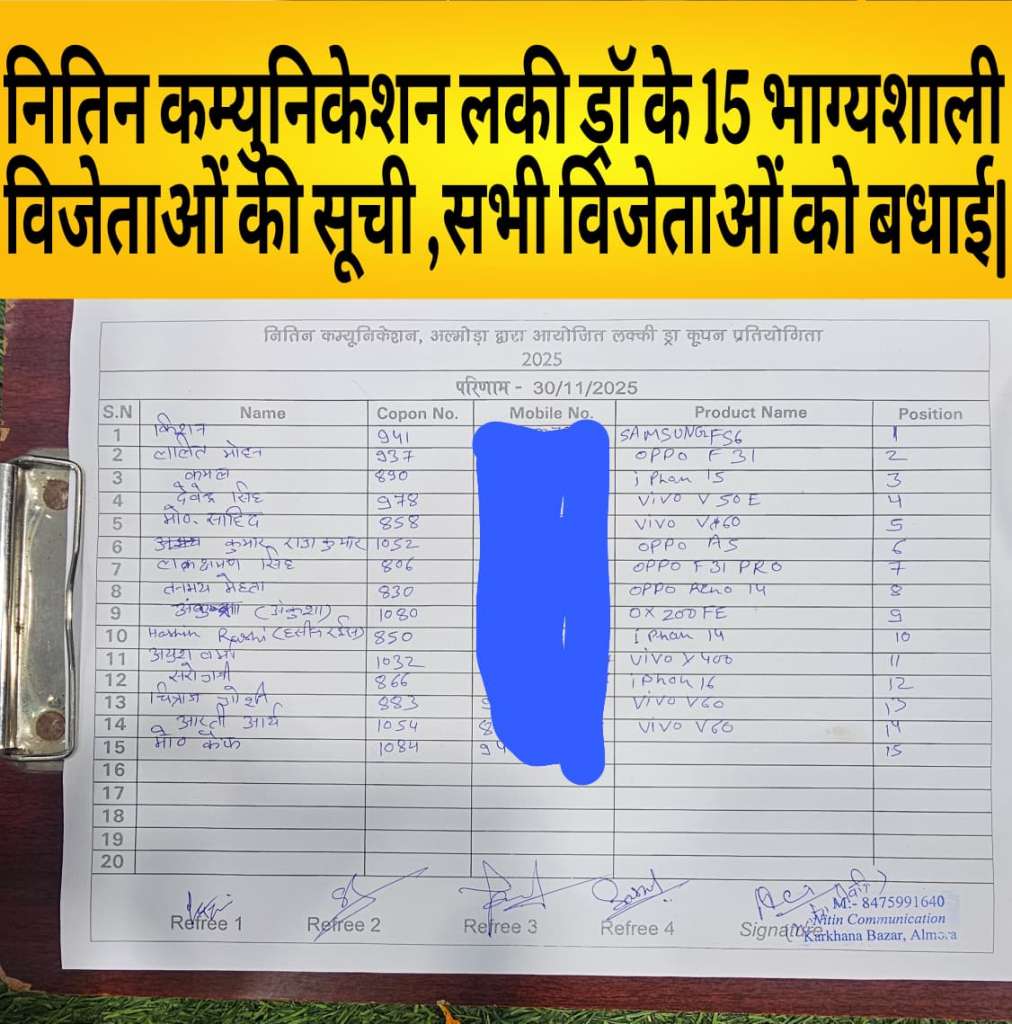 नितिन कम्युनिकेशन लकी ड्रॉ के 15 भाग्यशाली
विजेताओं की सूची ,सभी विजेताओं को बधाई|
नितिन कम्यूनिकेशन, अल्मोड़ा द्वारा आयोजित लक्की ड्रा कूपन प्रतियोगिता
2025
परिणाम - 30/11/2025
S.N Name Copon No. Mobile No. Product Name Position
1 किशन 941 SAMSUNG FS6 1
2 ललित मोहन 937 OPPO F31 2
3 कमल 890 iPhan 15 3
4 देवेन्द्र सिंह 978 Vivo V50E 4
5 मो०. साहिद 858 Vivo V60 5
6 कुमार राजा कुमार 1052 OPPO A5 6
7 सिंह 806 OPPO F31 PRO 7
8 तनमय मेहता 830 OPPO Reno 14 8
9 (अंकुशा) 1080 OX 200FE 9
10 850 iPhan 14 10
11 आयुश वर्मा 1032 Vivo Y400 11
12 866 iPhan 16 12
13 जोशी 883 Vivo V60 13
14 आरती आर्य 1054 Vivo V60 14
15 मो० कैफ 1084 15
16
17
18
19
20
Refree 1 Refree 2 Refree 3 Refree 4 Signature
M:- 8475991640
Nitin Communication
Karkhana Bazar, Almora